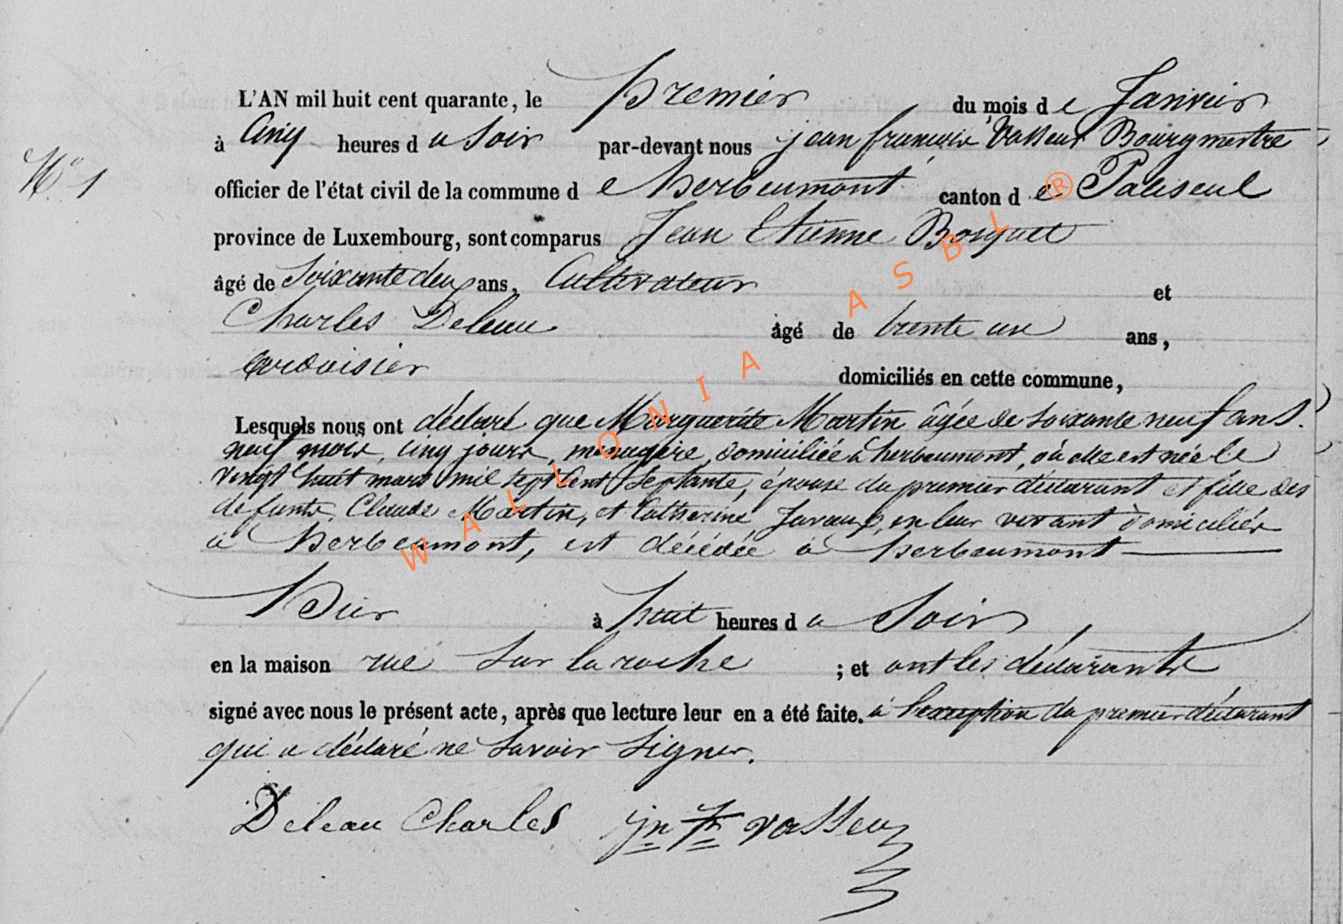 L'AN mil huit cent quarante, le premier du mois de Janvier
à Cinq heures du Soir par-devant nous jean françois Vasseur Bourgmestre
N° 1
officier de l'état civil de la commune de herbeumont canton de Paliseul
province de Luxembourg, sont comparus Jean Etienne Bosquet
âgé de Soixante deux ans, Cultivateur et
Charles Deleau âgé de trente un ans,
ardoisier domiciliés en cette commune,
Lesquels nous ont déclaré que Marguerite Martin âgée de soixante neuf ans.
neuf mois, cinq jours, menagère, domiciliée à herbeumont, où elle est née le
vingt huit mars mil sept Cent Septante, épouse du premier déclarant et fille des
defunts, Claude Martin, et Catherine en leur vivant domiciliés
à herbeumont, est décédée à herbeumont
hier à huit heures du Soir
en la maison rue Sur la roche ; et ont les déclarants
signé avec nous le présent acte, après que lecture leur en a été faite. à l'exception du premier déclarant
qui a déclaré ne Savoir Signer.
Deleau Charles jn F vasseur
WALLONIA ASBL ®